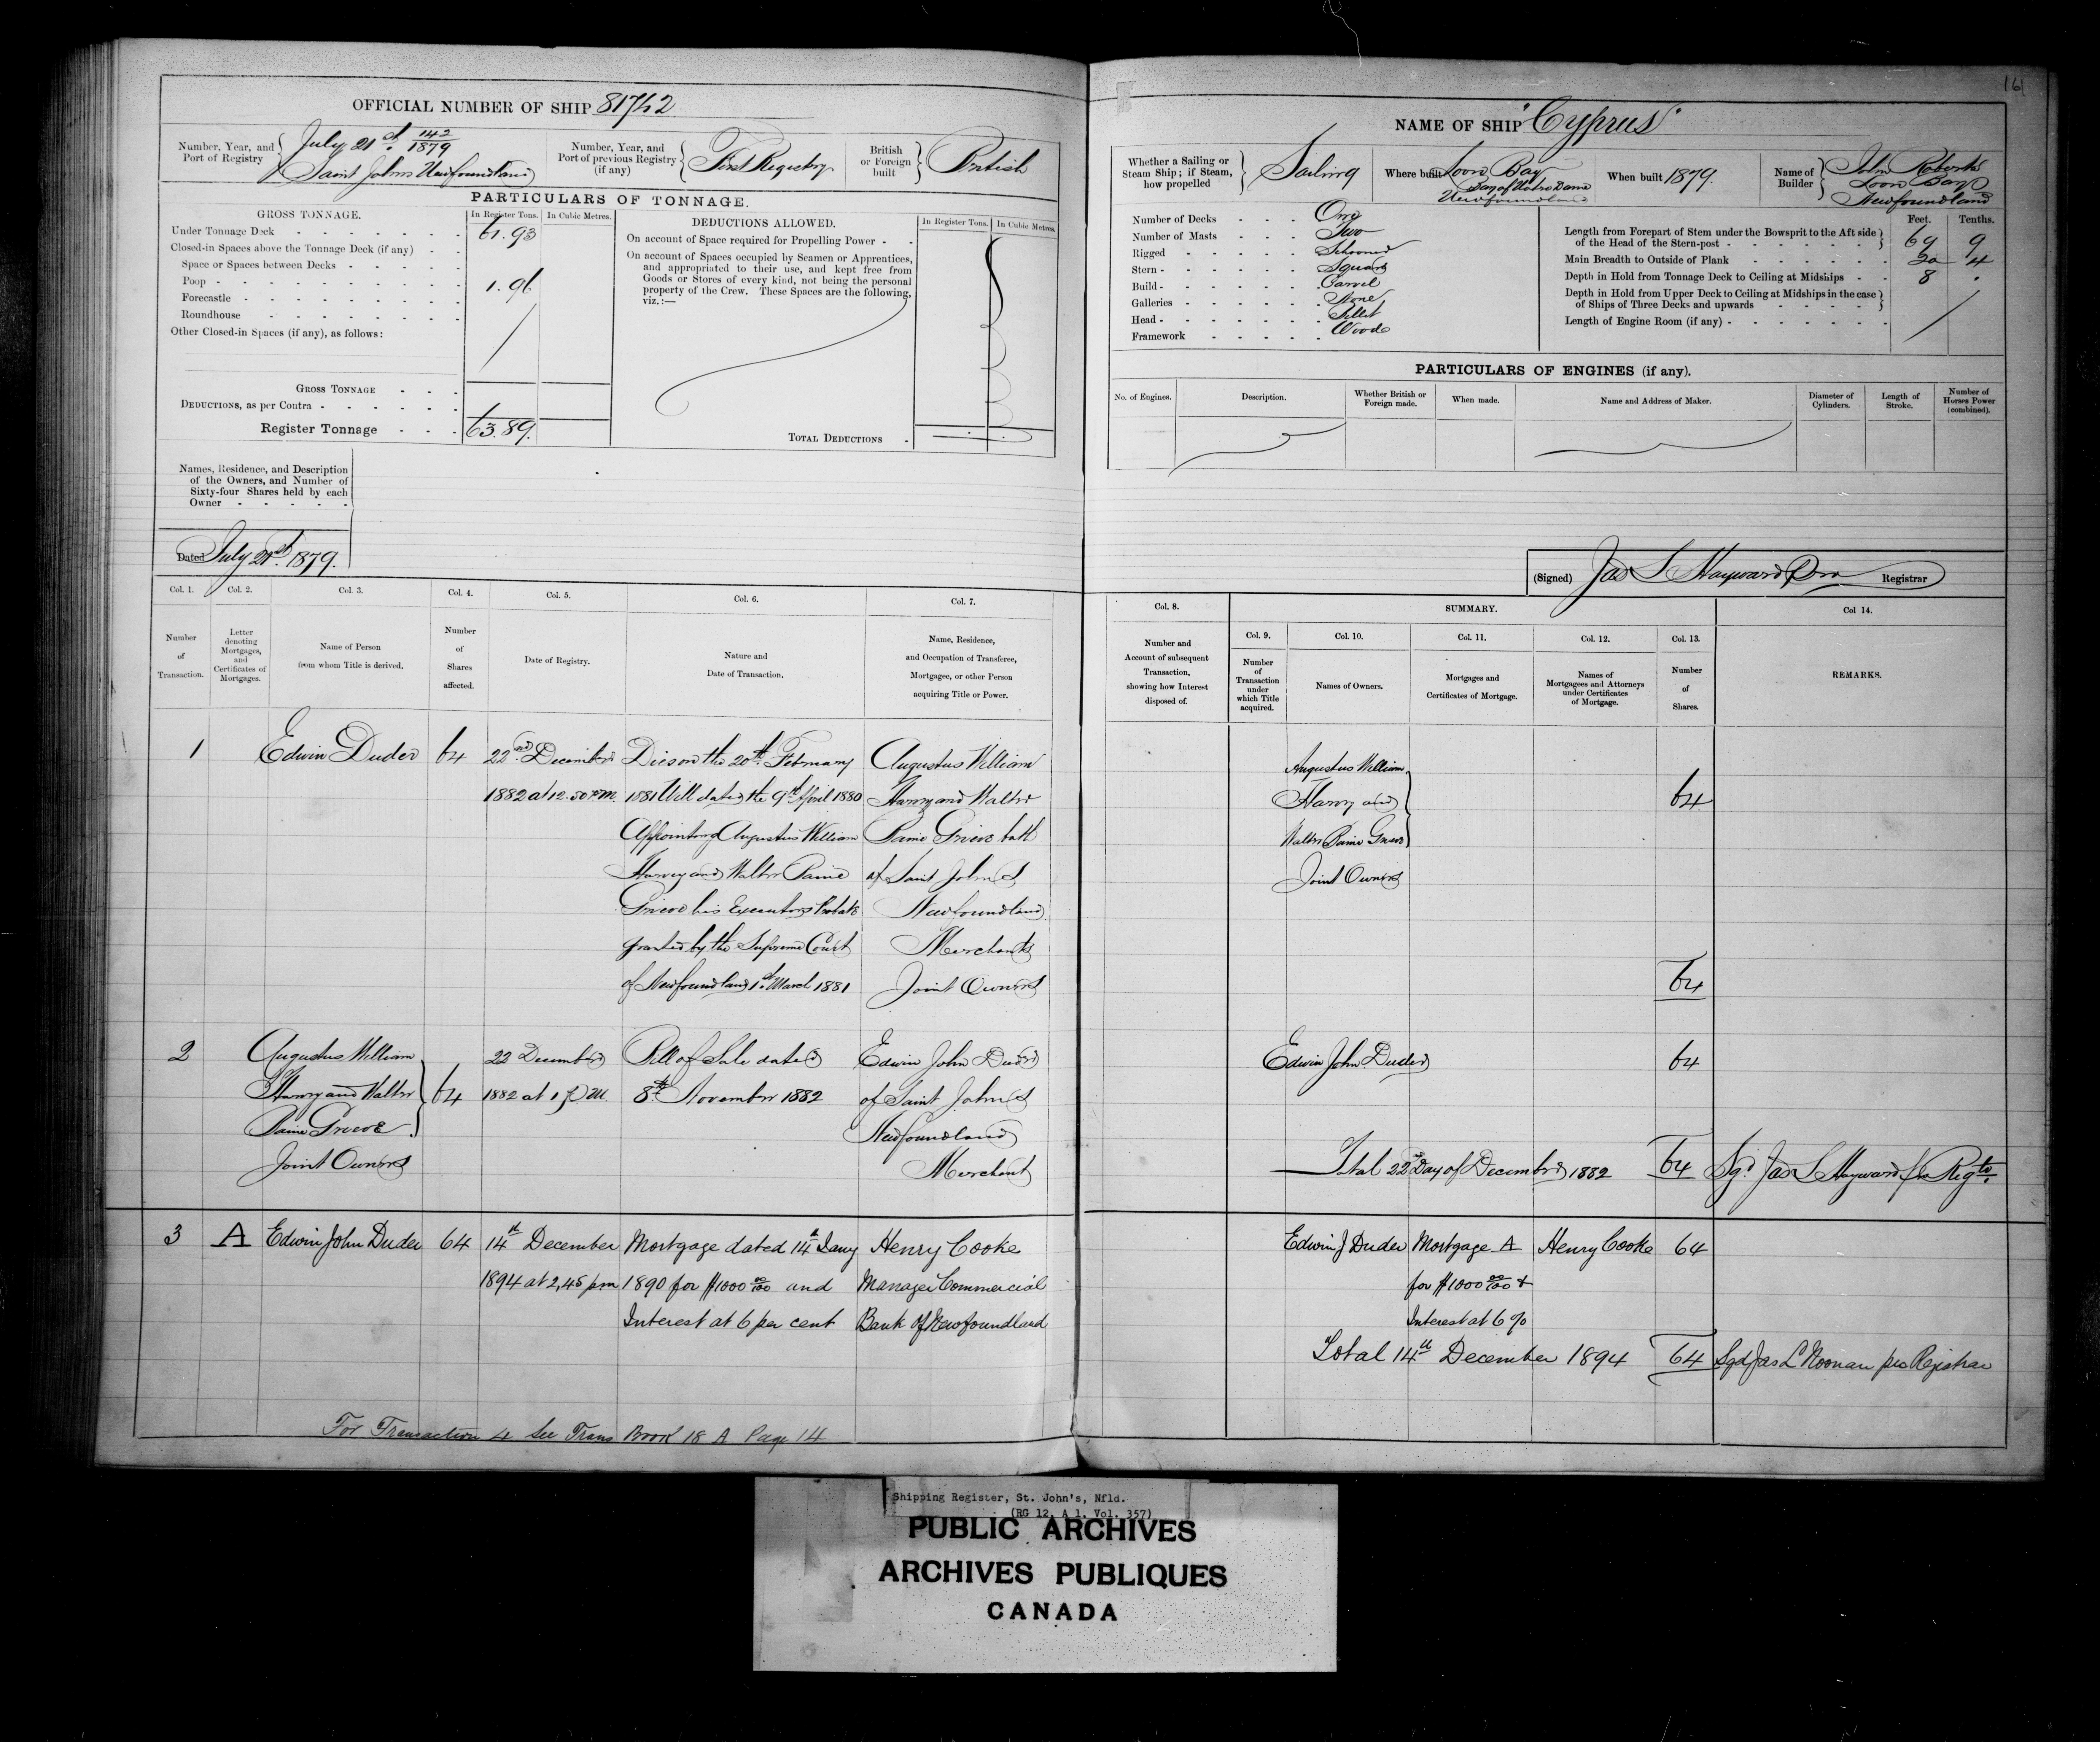 161
OFFICIAL NUMBER OF SHIP 81742
Number, Year, and Port of Registry
July 21st 142/1879
Saint Johns Newfoundland
Number, Year, and Port of previous Registry (if any)
First Registry
British or Foreign built
British
PARTICULARS OF TONNAGE.
GROSS TONNAGE.
In Register Tons.
In Cubic Metres.
Under Tonnage Deck 61.93
Closed-in Spaces above the Tonnage Deck (if any)
Space or Spaces between Decks
Poop 1.96
Forecastle
Roundhouse
Other Closed-in Spaces (if any), as follows:
GROSS TONNAGE
DEDUCTIONS, as per Contra
Register Tonnage 63.89.
DEDUCTIONS ALLOWED.
In Register Tons.
In Cubic Metres.
On account of Space required for Propelling Power
On account of Spaces occupied by Seamen or Apprentices,
and appropriated to their use, and kept free from
Goods or Stores of every kind, not being the personal
property of the Crew. These Spaces are the following,
viz.:—
TOTAL DEDUCTIONS
Names, Residence, and Description
of the Owners, and Number of
Sixty-four Shares held by each
Owner
Dated July 21st 1879.
NAME OF SHIP "Cyprus"
Whether a Sailing or Steam Ship; if Steam, how propelled
Sailing
Where built Loon Bay
Bay of Notre Dame
Newfoundland
When built 1879.
Name of Builder
John Roberts
Loon Bay
Newfoundland
Number of Decks One
Number of Masts Two
Rigged Schooner
Stern Square
Build Carvel
Galleries None
Head Billet
Framework Wood
Feet. Tenths.
Length from Forepart of Stem under the Bowsprit to the Aft side of the Head of the Stern-post 69 9
Main Breadth to Outside of Plank 20 4
Depth in Hold from Tonnage Deck to Ceiling at Midships 8 .
Depth in Hold from Upper Deck to Ceiling at Midships in the case of Ships of Three Decks and upwards
Length of Engine Room (if any)
PARTICULARS OF ENGINES (if any).
No. of Engines.
Description.
Whether British or Foreign made.
When made.
Name and Address of Maker.
Diameter of Cylinders.
Length of Stroke.
Number of Horses Power (combined).
(Signed) Jas S Hayward Pro Registrar
Col. 1. Col. 2. Col. 3. Col. 4. Col. 5. Col. 6. Col. 7.
Number of Transaction.
Letter denoting Mortgages, and Certificates of Mortgages.
Name of Person from whom Title is derived.
Number of Shares affected.
Date of Registry.
Nature and Date of Transaction.
Name, Residence, and Occupation of Transferee, Mortgagee, or other Person acquiring Title or Power.
Col. 8. SUMMARY. Col 14.
Col. 9. Col. 10. Col. 11. Col. 12. Col. 13.
Number and Account of subsequent Transaction, showing how Interest disposed of.
Number of Transaction under which Title acquired.
Names of Owners.
Mortgages and Certificates of Mortgage.
Names of Mortgagees and Attorneys under Certificates of Mortgage.
Number of Shares.
REMARKS.
1 Edwin Duder 64 22nd December Died on the 20th February Augustus William
1882 at 12.50 P.M. 1881 Will dated the 9th April 1880 Harvey and Walter
Appointing Augustus William Baine Grieve both
Harvey and Walter Baine of Saint John's
Grieve his Executors Probate Newfoundland
granted by the Supreme Court Merchants
of Newfoundland 1st March 1881 Joint Owners
Augustus William
Harvey and 64
Walter Baine Grieve
Joint Owners
64
2 Augustus William 22 December Bill of Sale dated Edwin John Duder
Harvey and Walter 64 1882 at 1 P.M. 8th November 1882 of Saint John's
Baine Grieve Newfoundland
Joint Owners Merchant
Edwin John Duder 64
Total 22nd Day of December 1882 64 Sgd. Jas S Hayward pro Regtr.
3 A Edwin John Duder 64 14th December Mortgage dated 14th Jany Henry Cooke
1894 at 2,45 pm 1890 for $1000 00/100 and Manager Commercial
Interest at 6 per cent Bank of Newfoundland
Edwin J Duder Mortgage A Henry Cooke 64
for $1000 00/100 &
Interest at 6%
Total 14th December 1894 64 Sgd Jas L Noonan pro Registrar
For Transaction 4 See Trans Book 18 A Page 14
Shipping Register, St. John's, Nfld.
(RG 12, A 1, Vol. 357)
PUBLIC ARCHIVES
ARCHIVES PUBLIQUES
CANADA